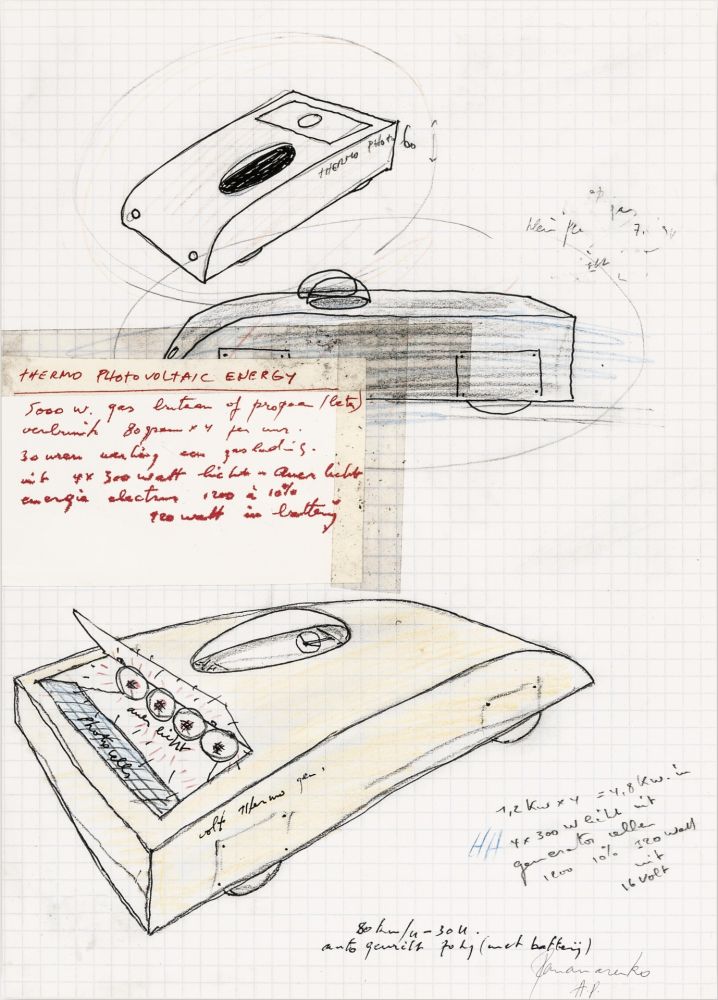 THERMO PHOTO
60
THERMO PHOTOVOLTAIC ENERGY
5000 w. gas butaan of propaan
verbruik 80 gram x 4 per uur.
30 uren werking een gaslading.
uit 4x 300 watt licht = Auer licht
energie electrum 1200 à 10%
120 watt in batterij
auer licht
Photocellen
volt thermo gen.
1,2 Kw x 4 = 4,8 Kw. in
4x300 w licht uit
generator cellen
1200 10% 120 watt
uit
16 volt
80 km/u - 30 u.
auto gewicht 70 kg (met batterij)
Panamarenko
A.P.